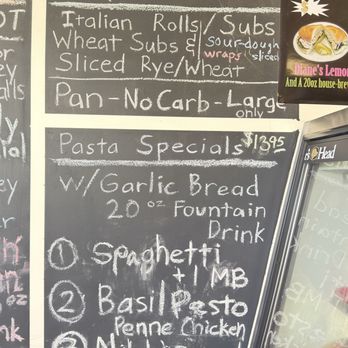 Italian Rolls/Subs
Wheat Subs & sour-dough
wraps sliced
Sliced Rye/Wheat
Pan-No Carb-Large
only
Pasta Specials $13.95
W/Garlic Bread
20 oz Fountain
Drink
① Spaghetti
+1 MB
② Basil Pesto
Penne Chicken
③
Diane's Lemon
And A 20oz house-bre
Head